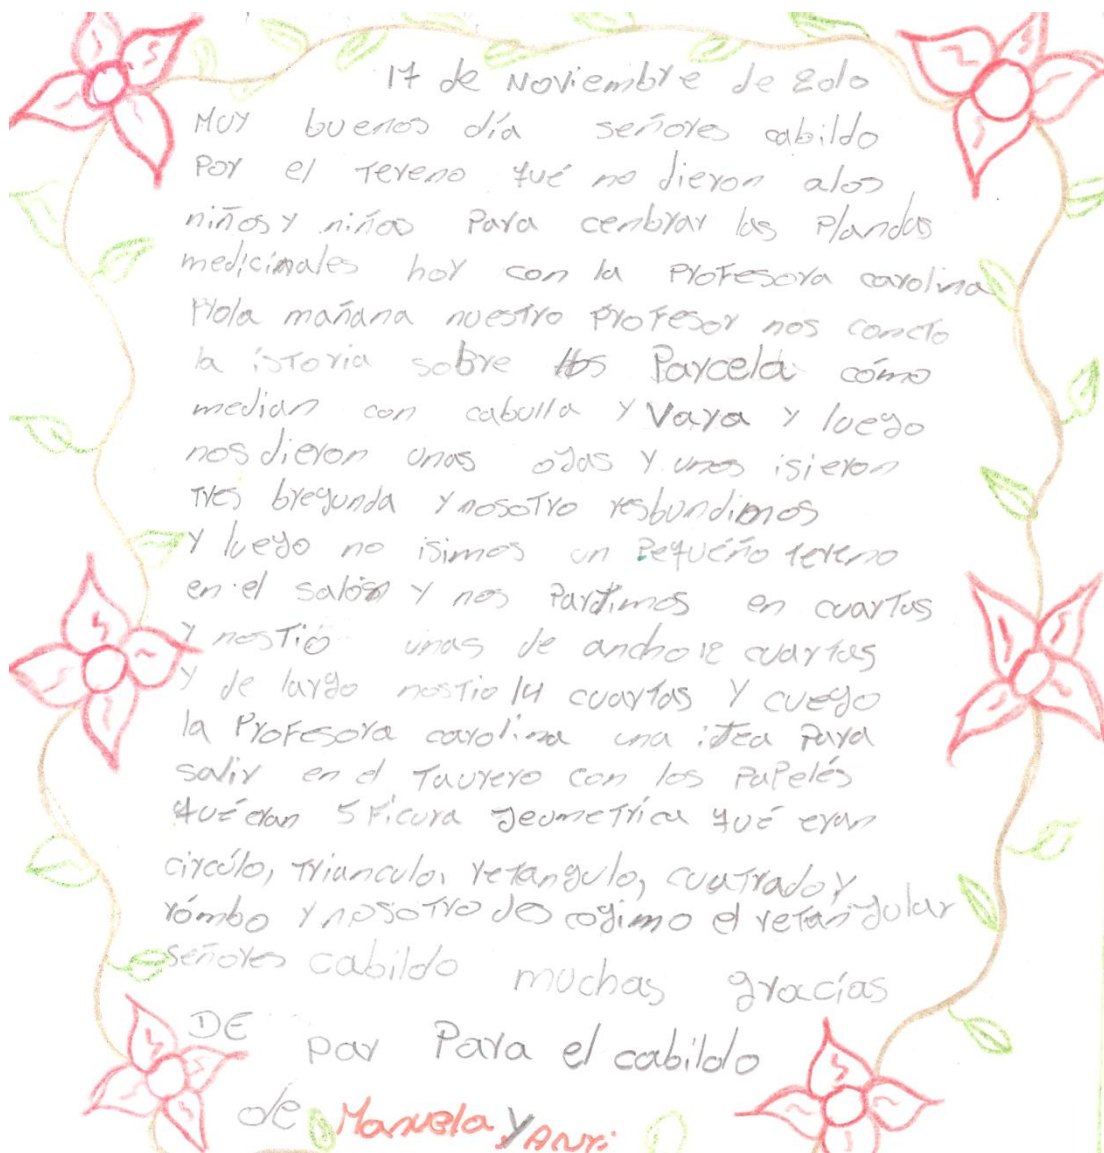 17 de Noviembre de 2010
MUY buenos día señores cabildo
Por el Tereno qué no dieron alos
niños y niños Para cenbrar las Plandas
medicinales hoy con la Profesora carolina
Hola mañana nuestro Profesor nos concto
la istoria sobre los Parcela cómo
median con cabulla y Vara y luego
nos dieron unas ojas y unos isieron
Tres bregunda y nosotro resbundimos
y luego no isimos un Pequéño tereno
en el salón y nos Pardimos en cuartas
y nos Tió unas de ancho 12 cuartas
y de largo nostio 14 cuartas y cuego
la Profesora carolina una idea Para
salir en el Taurero con los Papelés
qué eran 5 Ficura geumeTrica qué eran
circúlo, Trianculo, retangulo, cuatrado y
rómbo y nosoTro des cogimo el retangular
señores cabildo muchas gracías
DE par Para el cabildo
de Manuela y